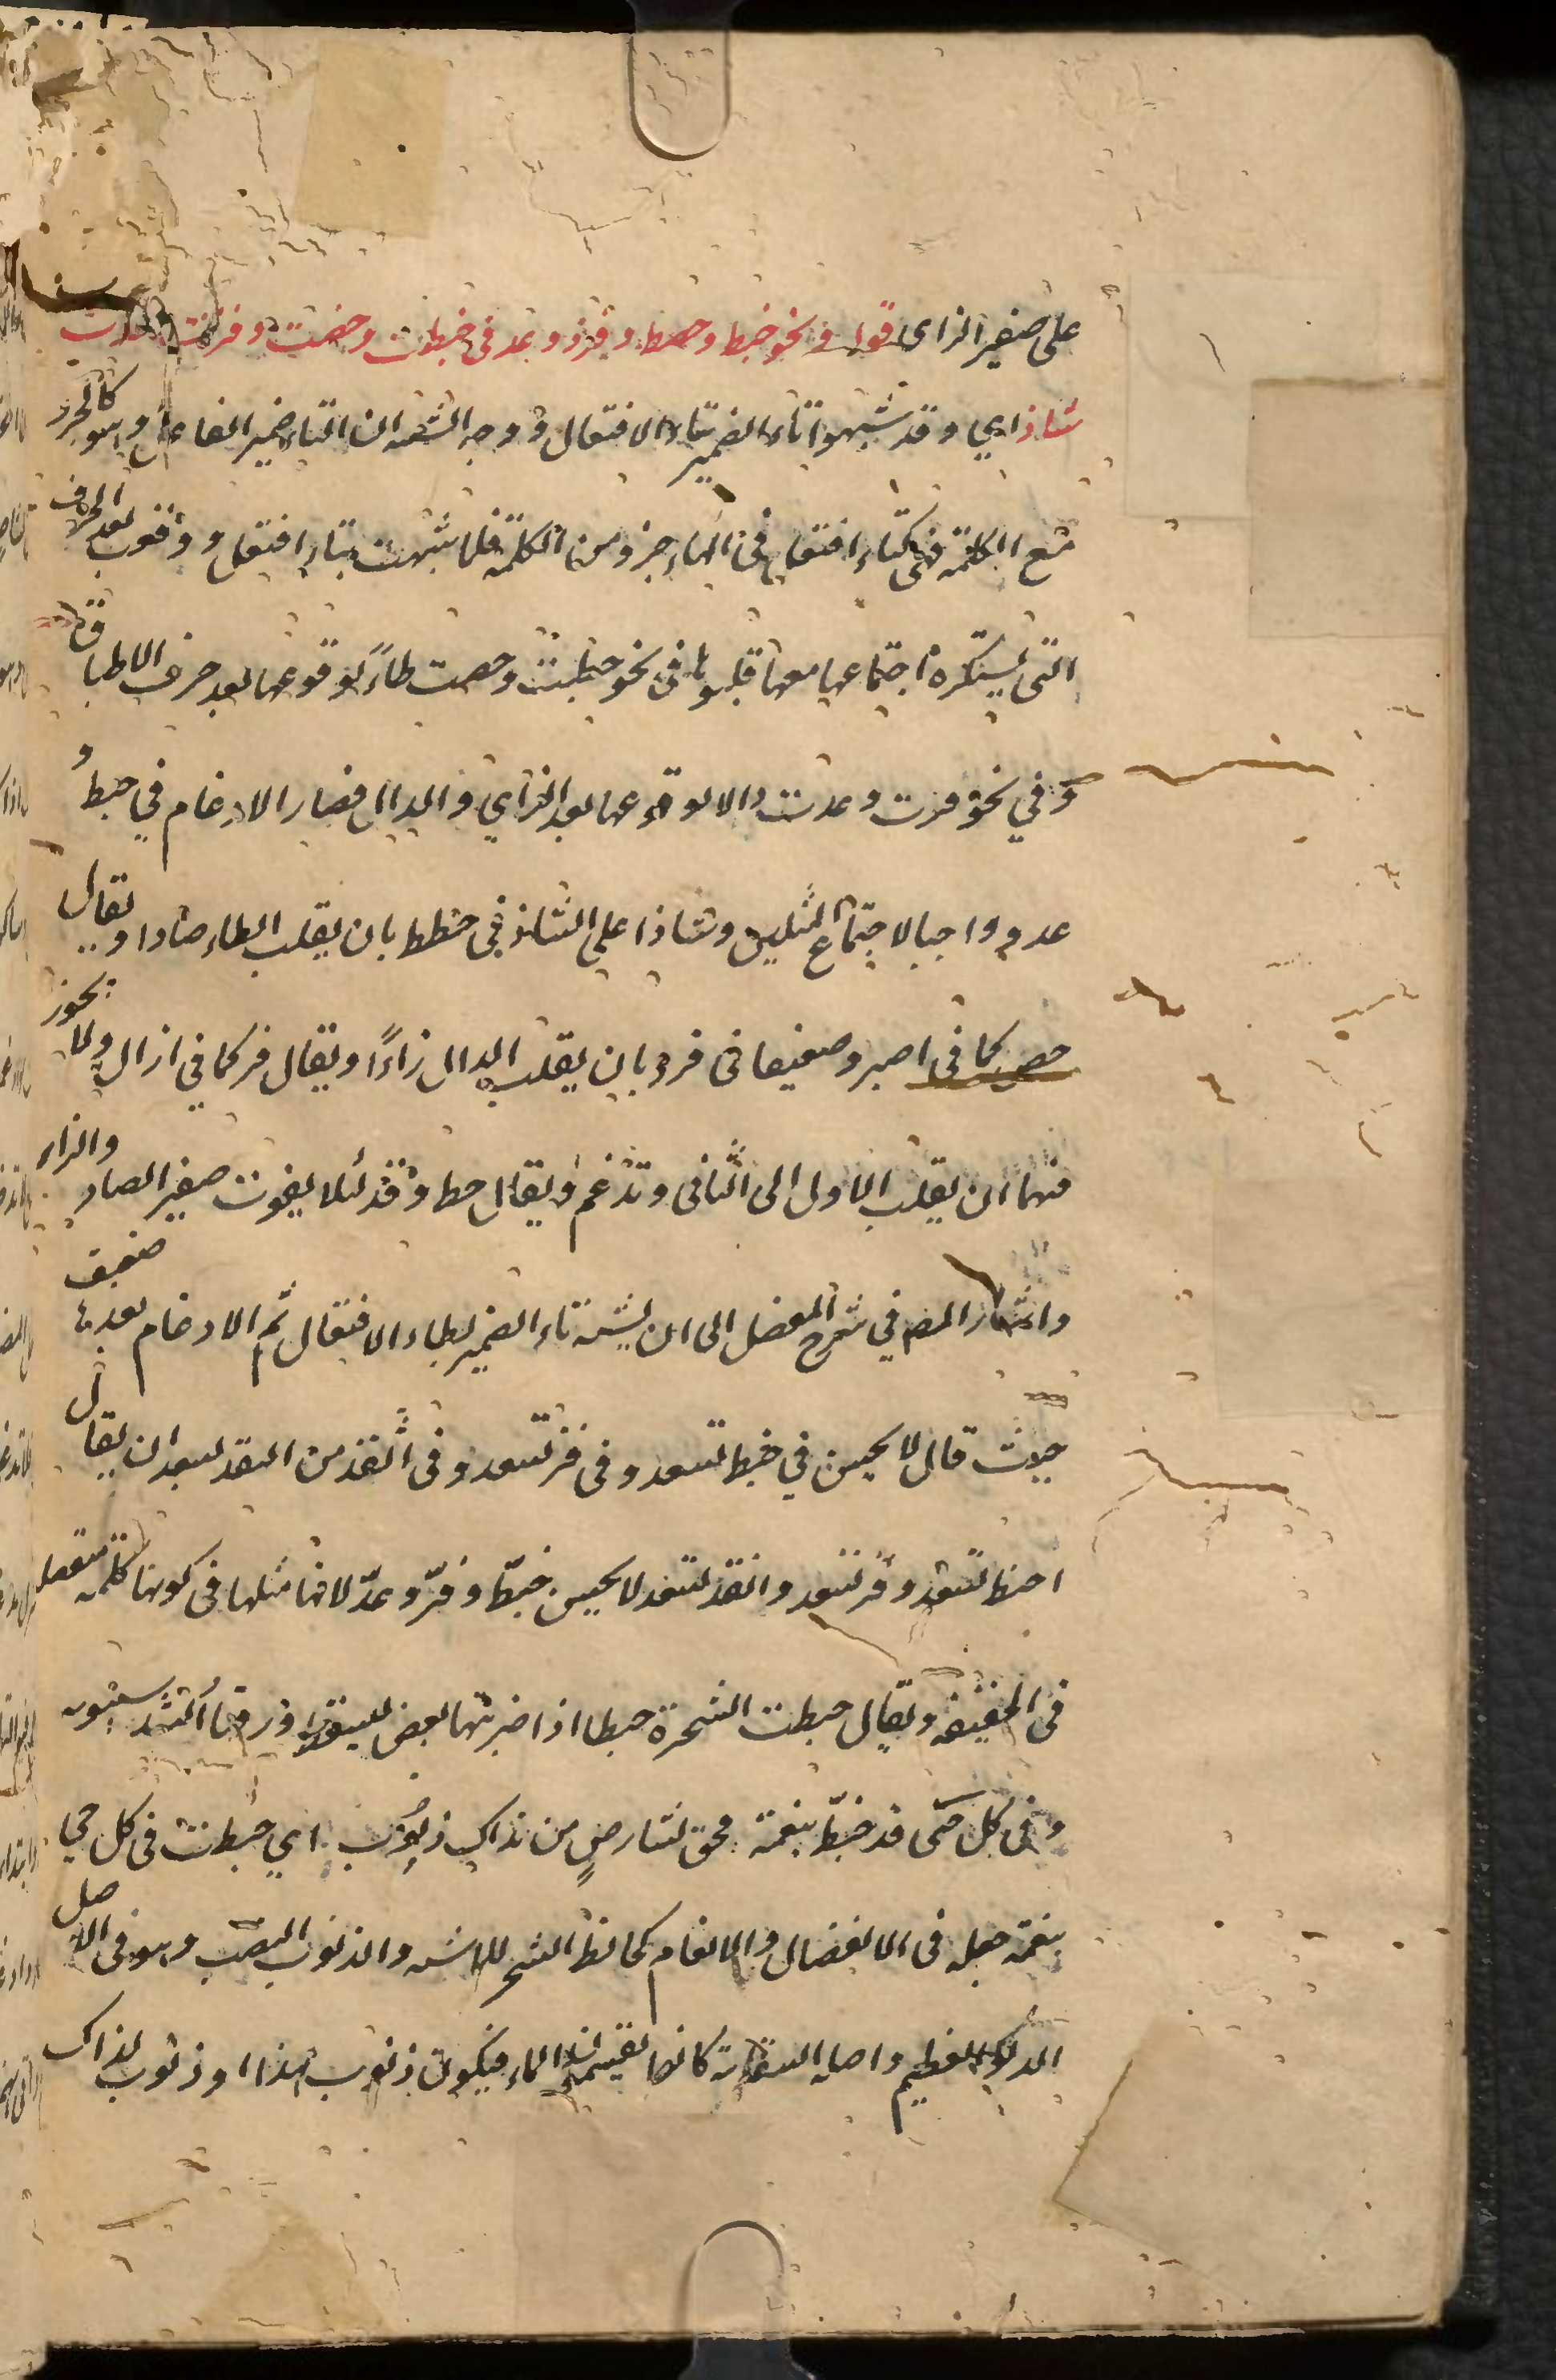 على صفير الزاى قوله ونحو خبط وحصط وفزد وعد فى خبطت وحصت وفزت وعدت
شاذ اي وقد شبهوا تاء الضمير بتاء الافتعال ووجه الشبه ان التاء ضمير الفاعل وهو كالجزء
مع الكلمة فهى كتاء افتعل فى انها جزء من الكلمة فلما شبهت بتاء افتعل ووقوع بعد الحرف
التى يستكره اجتماعها معها قلبوها فى نحو خبطت وحصت طاءً لوقوعها بعد حرف الاطباق
وفي نحو فزت وعدت دالا لوقوعها بعد الزاي والدال فصار الادغام في خبط و
عد واجبا لاجتماع المثلين وشاذا على الشاذ في حصط بان يقلب الطاء صادا ويقال
حص كما فى اصبر وضعيفا فى فزد بان يقلب الدال زاءً ويقال فز كما في ازان ولا يجوز
فيهما ان يقلب الاول الى الثانى وتدغم ويقال حط وفد لئلا يفوت صفير الصاد والزاء
واشار المص في شرح المفصل الى ان يشبه تاء الضمير بطاء الافتعال ثم الادغام بعدها ضعيف
حيث قال لا يحسن في خبط تسعد وفى فز تسعد وفى انقذ من النقد تسعد ان يقال
احفظ تسعد وفز تسعد وانقذ تسعد لا يحسن خبطّ وفزّ وعدّ لانها مثلها فى كونها كلمة منفصلة
فى الحقيقة ويقال خبطت الشجرة خبطا اذا ضربتها بعض ليسقط ورقها انشد سيبويه
وفى كل حىّ قد خبطّ بنعمة فحق لشأسٍ من نداك ذنوب اي خبطت فى كل حي
بنعمة جعله فى الافضال والانعام كخابط الشجر للماشية والذنوب النصيب وهو فى الاصل
الدلو العظيم واصله السقاة كانوا يقتسمون الماء فيكون ذنوب لهذا وذنوب لذاك